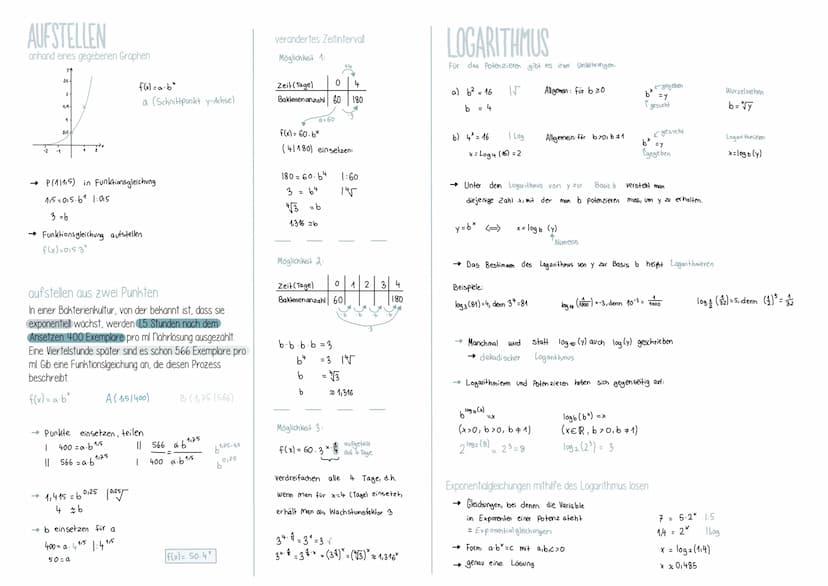 AUFSTELLEN
anhand eines gegebenen Graphen
f(x)=a·bˣ
a (Schnittpunkt y-Achse)
→ P(1|1,5) in Funktionsgleichung
1,5=0,5·b¹ |:0,5
3=b
→ Funktionsgleichung aufstellen
f(x)=0,5·3ˣ
aufstellen aus zwei Punkten
In einer Bakterienkultur, von der bekannt ist, dass sie
exponentiell wächst, werden 1,5 Stunden nach dem
Ansetzen 400 Exemplare pro ml Nährlösung ausgezählt.
Eine Viertelstunde später sind es schon 566 Exemplare pro
ml. Gib eine Funktionsgleichung an, die diesen Prozess
beschreibt.
f(x)=a·bˣ A(1,5|400) B(1,75|566)
→ Punkte einsetzen, teilen
I 400=a·b^1,5
II 566=a·b^1,75
II 566 = a·b^1,75 b^1,75-1,5
I 400 a·b^1,5 b^0,25
→ 1,415=b^0,25 |0,25√
4 ≈b
→ b einsetzen für a
400=a·4^1,5 |:4^1,5
50=a
f(x)=50·4ˣ
verändertes Zeitintervall
Möglichkeit 1:
+4
Zeit (Tage) 0 4
Bakterienanzahl 60 180
a=60 ·3
f(x)=60·bˣ
(4|180) einsetzen:
180=60·b⁴ |:60
3 = b⁴ |⁴√
⁴√3 =b
1,316≈b
Möglichkeit 2:
Zeit (Tage) 0 1 2 3 4
Bakterienanzahl 60 180
·b ·b ·b ·b
·3
b·b·b·b=3
b⁴ =3 |⁴√
b =⁴√3
b ≈1,316
Möglichkeit 3:
f(x)=60·3^x·¼ aufgeteilt
auf 4 Tage
verdreifachen alle 4 Tage, d.h.
wenn man für x=4 (Tage) einsetzt,
erhält man als Wachstumsfaktor 3
3^4·¼=3¹=3 ✓
3^x·¼=3^¼·x=(3^¼)ˣ=(⁴√3)ˣ≈1,316ˣ
LOGARITHMUS
Für das Potenzieren gibt es zwei Umkehrungen:
a) b²=16 |√ Allgemein: für b≥0 bˣ=y gegeben Wurzelziehen
b = 4 gesucht b=ˣ√y
b) 4ˣ=16 |Log Allgemein: für b>0, b≠1 bˣ=y gesucht Logarithmieren
x=Log₄(16)=2 gegeben x=log_b(y)
→ Unter dem Logarithmus von y zur Basis b versteht man
diejenige Zahl x, mit der man b potenzieren muss, um y zu erhalten.
y=bˣ ⟺ x=log_b(y)
Numerus
→ Das Bestimmen des Logarithmus von y zur Basis b heißt Logarithmieren
Beispiele:
log₃(81)=4, denn 3⁴=81 log₁₀(1/1000)=-3, denn 10⁻³=1/1000 log½(1/32)=5, denn (½)⁵=1/32
→ Manchmal wird statt log₁₀(y) auch log(y) geschrieben
→ dekadischer Logarithmus
→ Logarithmieren und Potenzieren heben sich gegenseitig auf:
b^log_b(x)=x log_b(bˣ)=x
(x>0, b>0, b≠1) (x∈ℝ, b>0, b≠1)
2^log₂(8)=2³=8 log₂(2³)=3
Exponentialgleichungen mithilfe des Logarithmus lösen
→ Gleichungen, bei denen die Variable
in Exponenten einer Potenz steht
= Exponentialgleichungen
→ Form a·bˣ=c mit a,b,c>0
→ genau eine Lösung
7 = 5·2ˣ |:5
1,4 = 2ˣ |log
x = log₂(1,4)
x ≈ 0,485